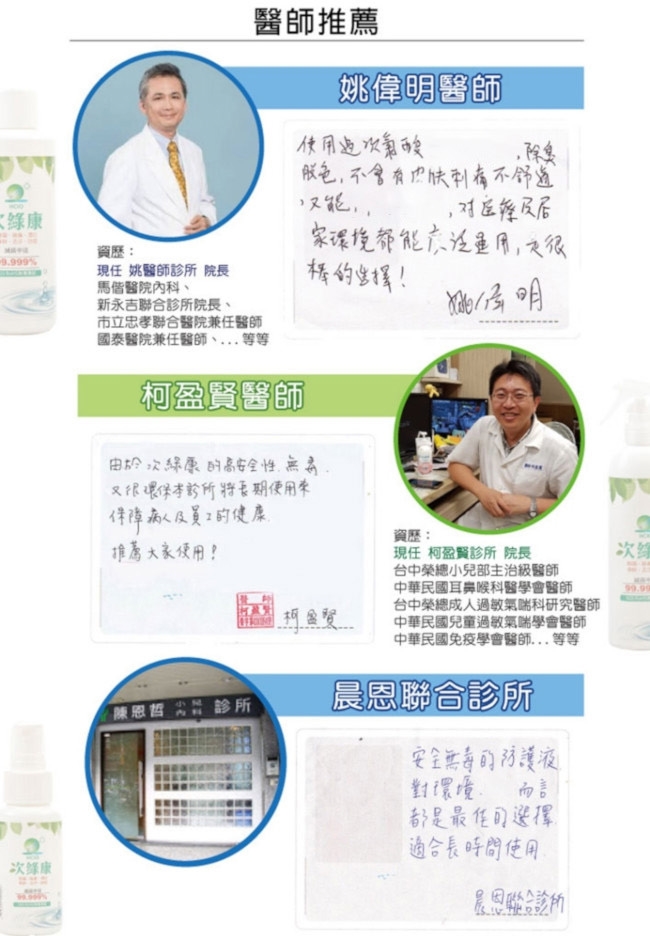 醫師推薦
姚偉明醫師
使用過次氯酸 ,除臭
脫色,不會有皮膚刺痛不舒適
,又能,, ,对医療及居
家環境都能广泛運用,是很
棒的選擇!
姚偉明
資歷:
現任 姚醫師診所 院長
馬偕醫院內科、
新永吉聯合診所院長、
市立忠孝聯合醫院兼任醫師
國泰醫院兼任醫師、...等等
柯盈賢醫師
由於次綠康的高安全性.無毒.
又很環保本診所將長期使用來
保障病人及員工的健康.
推薦大家使用!
醫師
柯盈賢
柯盈賢
資歷:
現任 柯盈賢診所 院長
台中榮總小兒部主治級醫師
中華民國耳鼻喉科醫學會醫師
台中榮總成人過敏氣喘科研究醫師
中華民國兒童過敏氣喘學會醫師
中華民國免疫學會醫師...等等
晨恩聯合診所
陳恩哲 小兒內科 診所
安全無毒的防護液
對環境. 而言
都是最佳的選擇
適合長時間使用
晨恩聯合診所
次綠康
99.999%
次綠
99.99
次綠康
99.999%